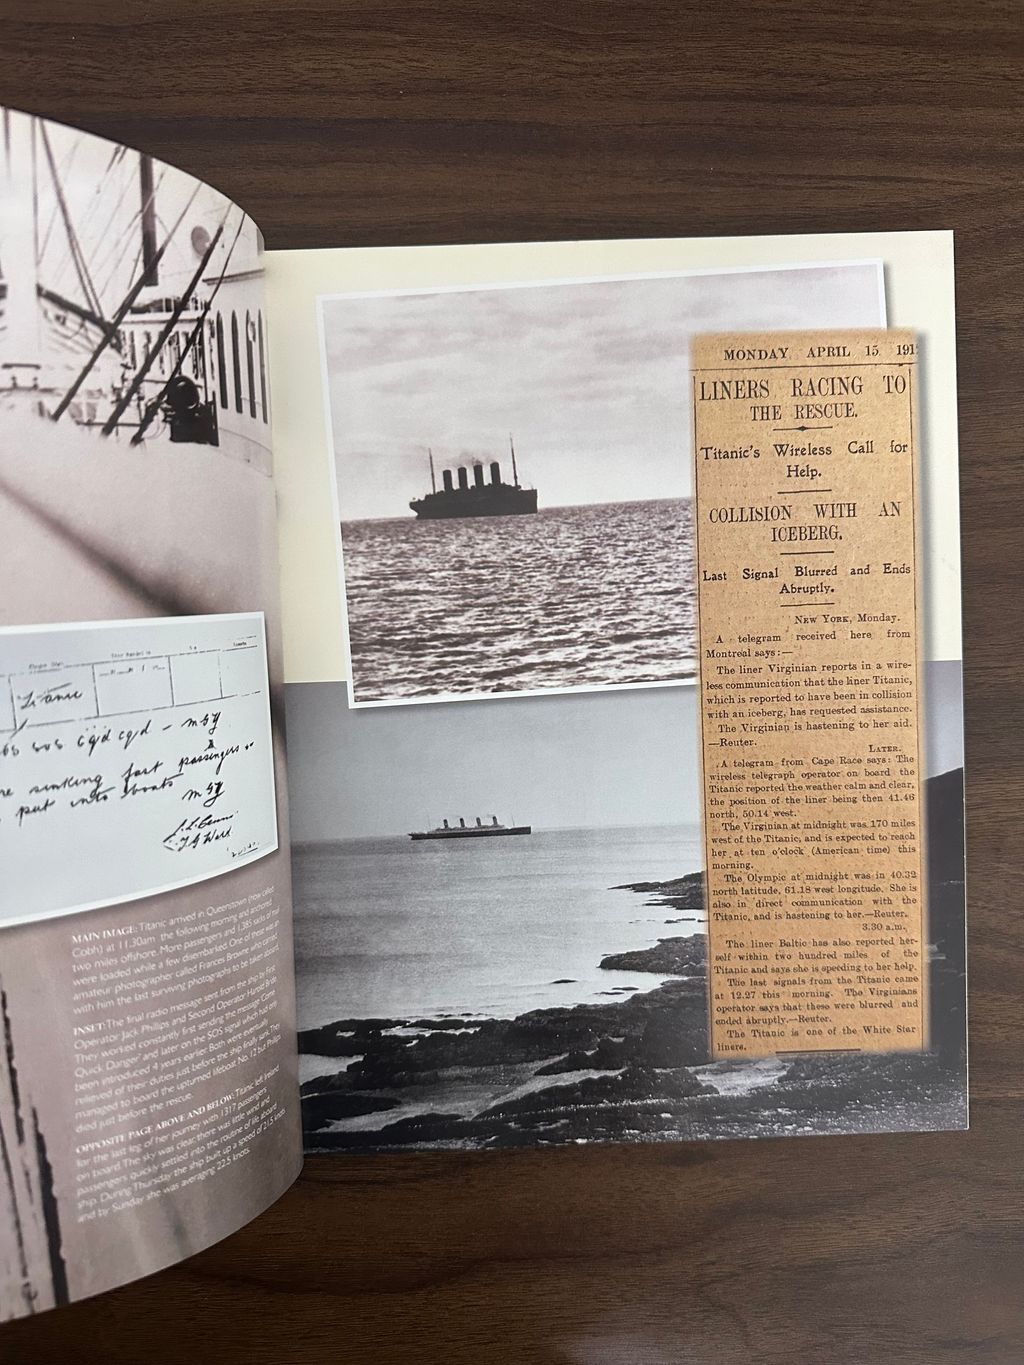 Titanic
sos sos cqd cqd - MGY
re sinking fast passengers
put into boats
MGY
MAIN IMAGE: Titanic arrived in Queenstown (now called
Cobh) at 11.30am the following morning and anchored
two miles offshore. More passengers and 1,385 sacks of mail
were loaded while a few disembarked. One of these was an
amateur photographer called Frances Browne who carried
with him the last surviving photographs to be taken aboard.
INSET: The final radio message sent from the ship by First
Operator Jack Phillips and Second Operator Harold Bride.
They worked constantly first sending the message 'Come
Quick Danger' and later on the SOS signal which had only
been introduced 4 years earlier. Both were eventually
relieved of their duties just before the ship finally sank. They
managed to board the upturned lifeboat No. 12 but Phillips
died just before the rescue.
OPPOSITE PAGE ABOVE AND BELOW: Titanic left Ireland
for the last leg of her journey with 1317 passengers
on board. The sky was clear, there was little wind and
passengers quickly settled into the routine of life aboard
ship. During Thursday the ship built up a speed of 21.5 knots
and by Sunday she was averaging 22.5 knots.
MONDAY APRIL 15 191
LINERS RACING TO
THE RESCUE.
Titanic's Wireless Call for
Help.
COLLISION WITH AN
ICEBERG.
Last Signal Blurred and Ends
Abruptly.
NEW YORK, Monday.
A telegram received here from
Montreal says:—
The liner Virginian reports in a wire-
less communication that the liner Titanic,
which is reported to have been in collision
with an iceberg, has requested assistance.
The Virginian is hastening to her aid.
—Reuter.
LATER.
A telegram from Cape Race says: The
wireless telegraph operator on board the
Titanic reported the weather calm and clear,
the position of the liner being then 41.46
north, 50.14 west.
The Virginian at midnight was 170 miles
west of the Titanic, and is expected to reach
her at ten o'clock (American time) this
morning.
The Olympic at midnight was in 40.32
north latitude, 61.18 west longitude. She is
also in direct communication with the
Titanic, and is hastening to her.—Reuter.
3.30 a.m.
The liner Baltic has also reported her-
self within two hundred miles of the
Titanic and says she is speeding to her help.
The last signals from the Titanic came
at 12.27 this morning. The Virginians
operator says that these were blurred and
ended abruptly.—Reuter.
The Titanic is one of the White Star
liners.